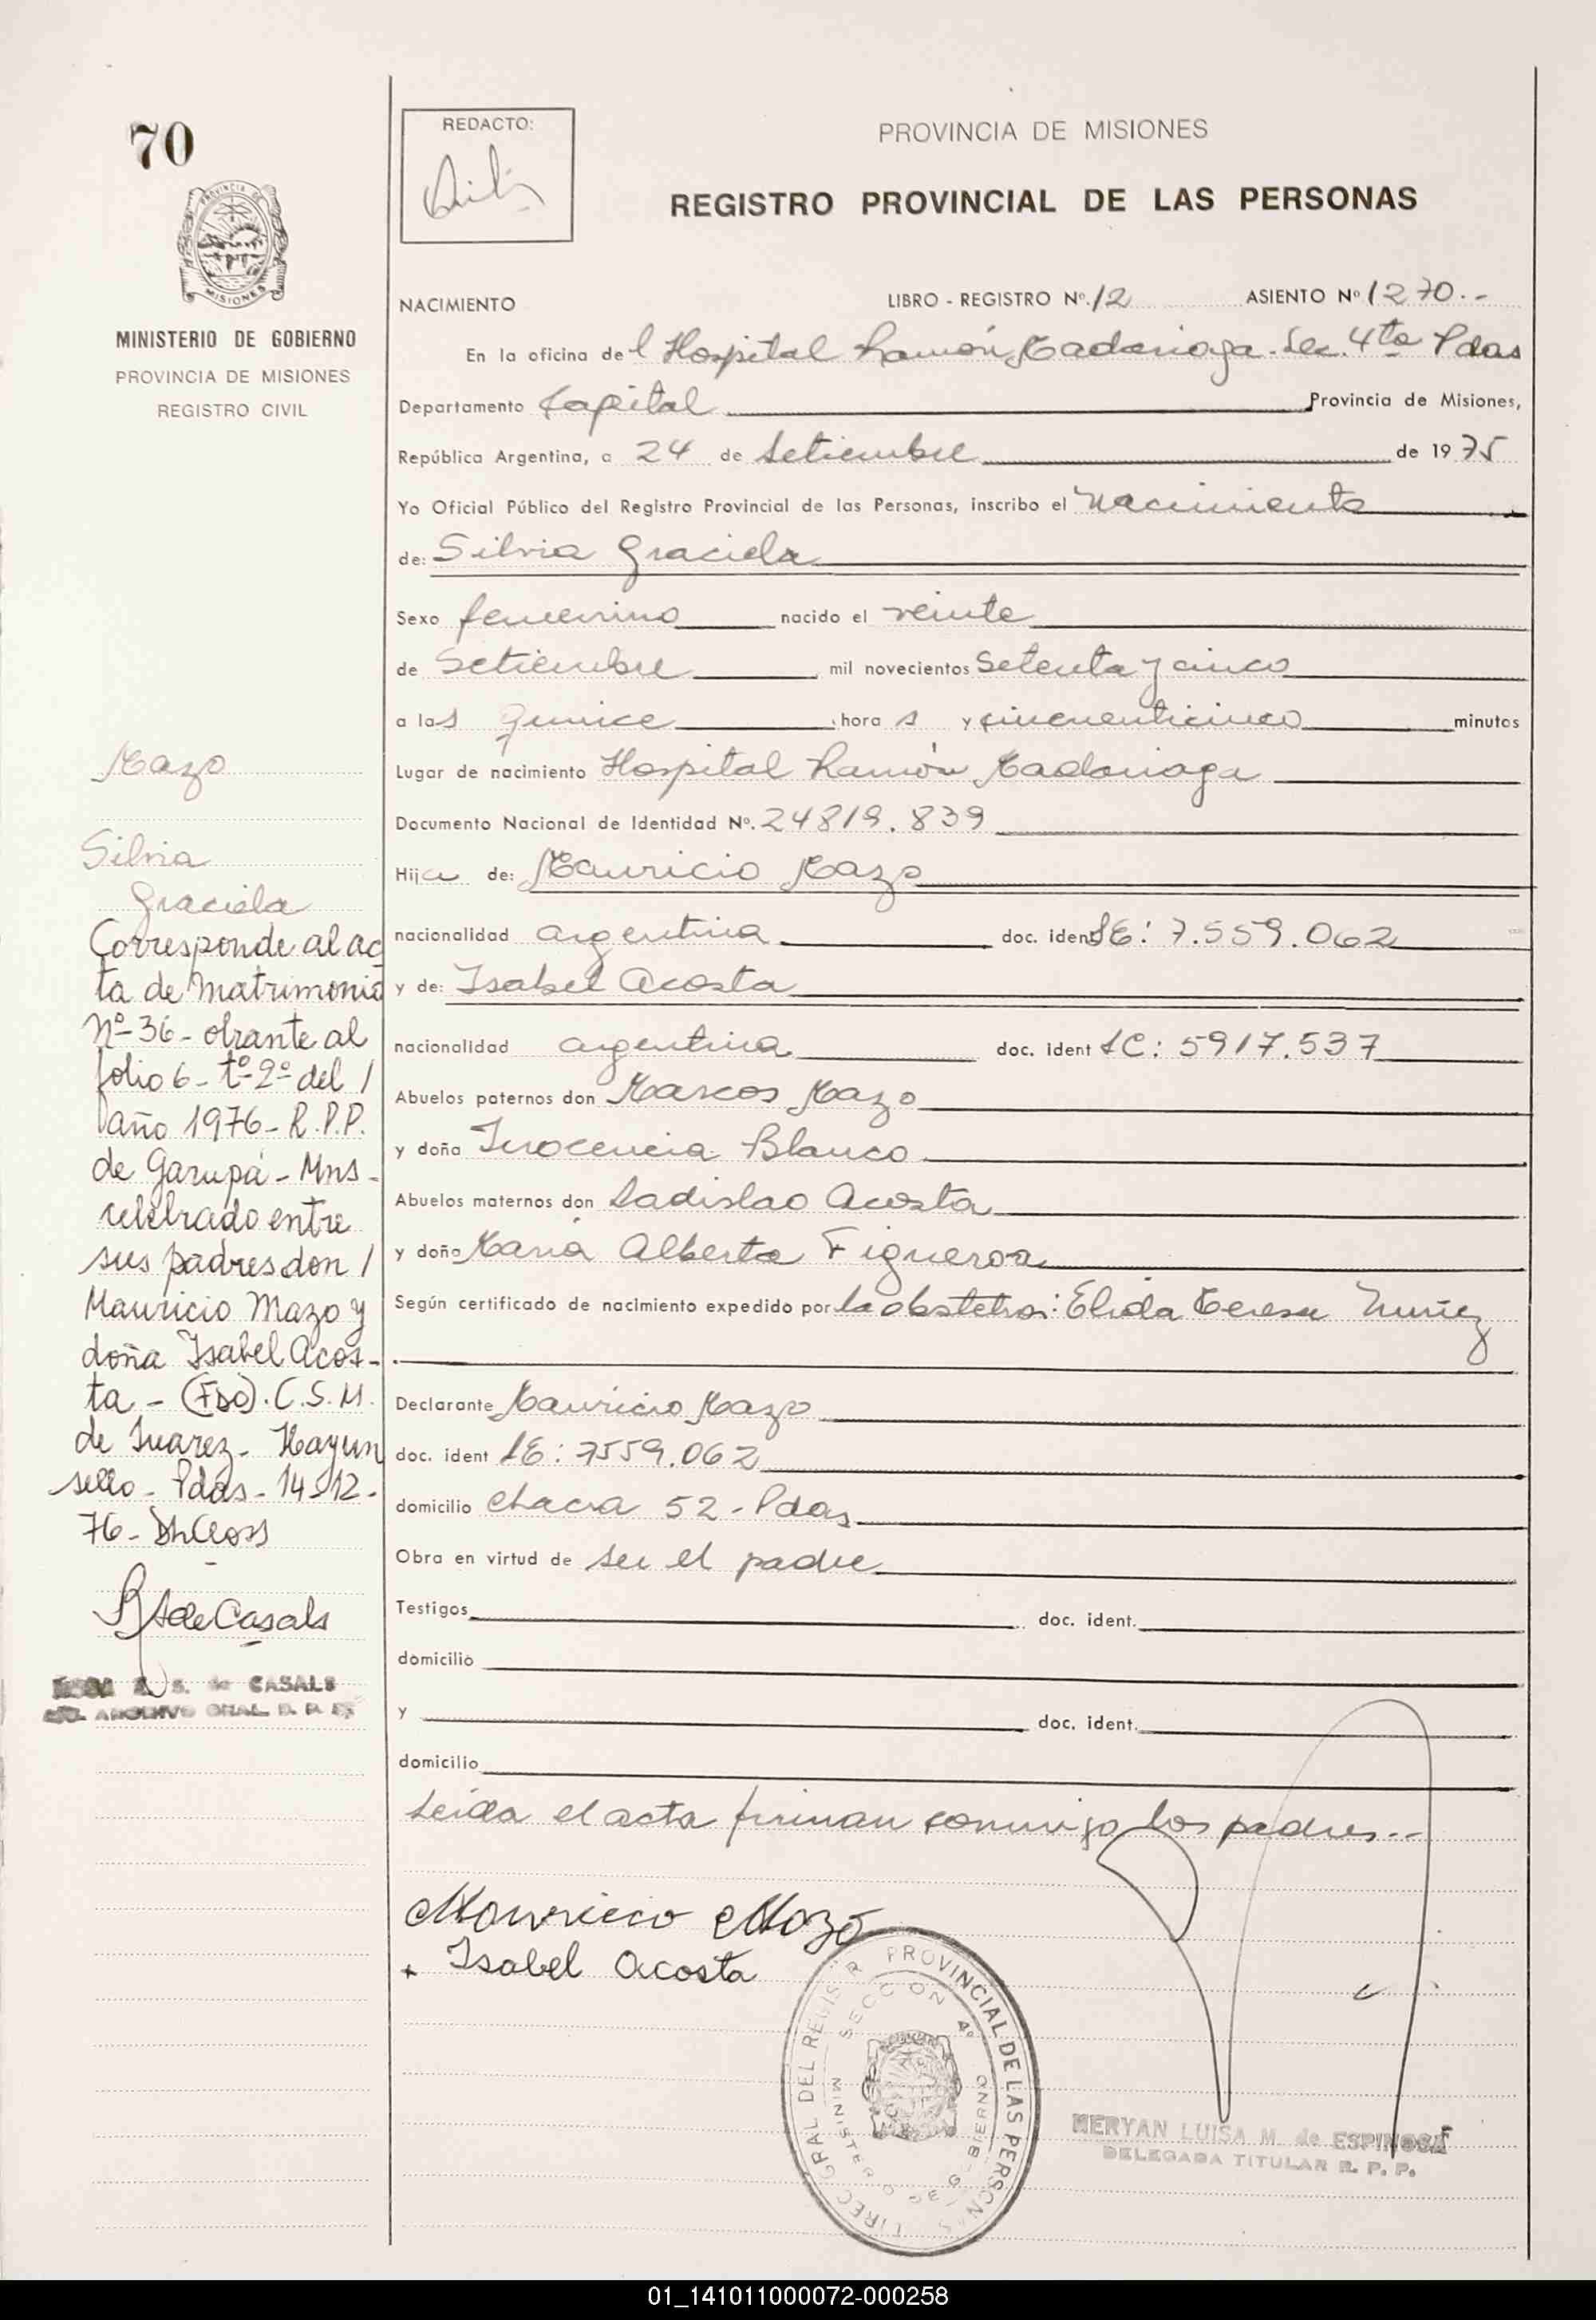 70
PROVINCIA DE MISIONES
MINISTERIO DE GOBIERNO
PROVINCIA DE MISIONES
REGISTRO CIVIL
Mazo
Silvia
Graciela
Corresponde al ac
ta de Matrimonio
Nº-36- obrante al
folio 6- tº-2º del /
año 1976- R.P.P.
de Garupá - Mns -
celebrado entre
sus padres don /
Mauricio Mazo y
doña Isabel Acos-
ta - (Fdo). C.S.M.
de Juarez- Hay un
sello - Pdas - 14-12-
76-
S. de CASALS
ARCHIVO GRAL. R. P. P.
REDACTO:
PROVINCIA DE MISIONES
REGISTRO PROVINCIAL DE LAS PERSONAS
NACIMIENTO LIBRO - REGISTRO Nº. 12 ASIENTO Nº 1270.-
En la oficina del Hospital Ramón Madariaga. Sec. 4ta Pdas
Departamento Capital Provincia de Misiones,
República Argentina, a 24 de Setiembre de 1975
Yo Oficial Público del Registro Provincial de las Personas, inscribo el Nacimiento
de: Silvia Graciela
Sexo femenino nacido el veinte
de Setiembre mil novecientos Setenta y cinco
a las quince horas y cincuenticinco minutos
Lugar de nacimiento Hospital Ramón Madariaga
Documento Nacional de Identidad Nº. 24819.839
Hija de: Mauricio Mazo
nacionalidad argentina doc. ident LE: 7.559.062
y de: Isabel Acosta
nacionalidad argentina doc. ident LC: 5917.537
Abuelos paternos don Marcos Mazo
y doña Inocencia Blanco
Abuelos maternos don Ladislao Acosta
y doña Maria Alberta Figueroa
Según certificado de nacimiento expedido por la obstetra: Elida Teresa Nuñez
Declarante Mauricio Mazo
doc. ident LE: 7559.062
domicilio Chacra 52 - Pdas
Obra en virtud de ser el padre
Testigos doc. ident.
domicilio
y doc. ident.
domicilio
Leída el acta firman conmigo los padres.--
Mauricio Mazo
Isabel Acosta
DIREC. GRAL DEL REGISTR PROVINCIAL DE LAS PERSONAS
SECCION 4º
MINISTERIO DE GOBIERNO
MERYAN LUISA M. de ESPINOSA
DELEGADA TITULAR R. P. P.
01_141011000072-000258